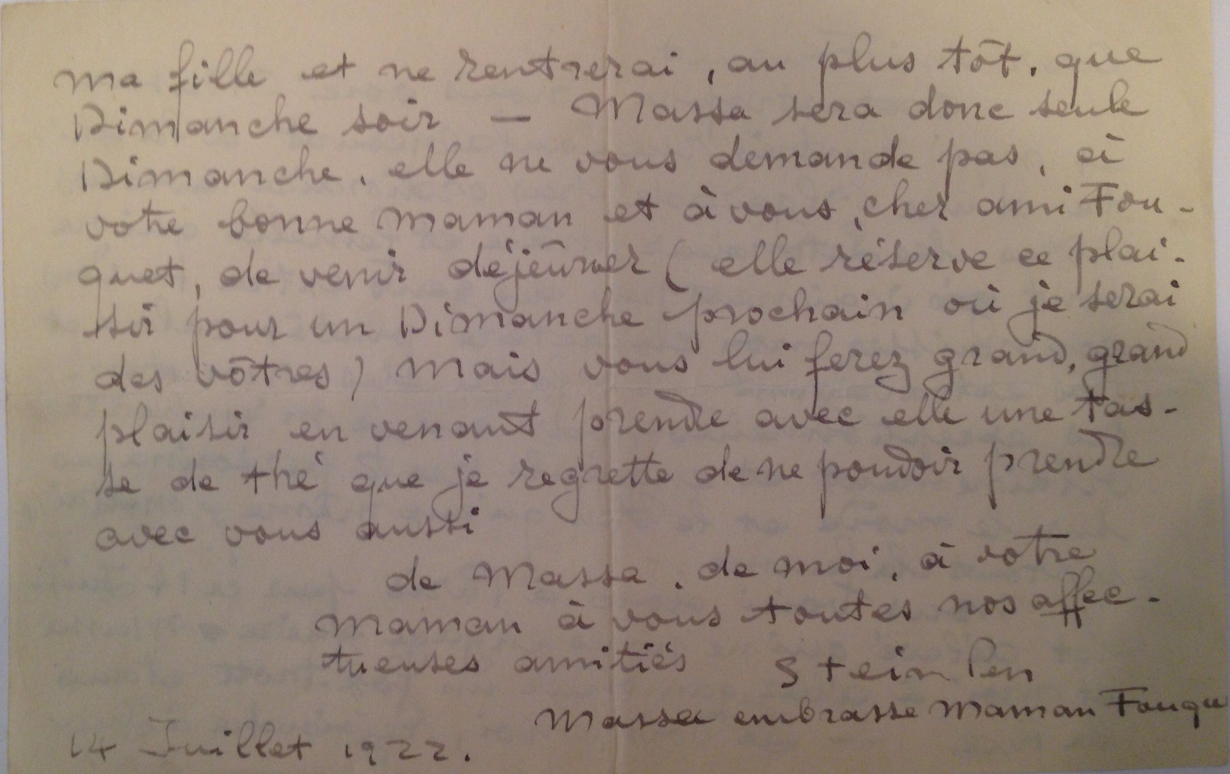 ma fille et ne rentrerai, au plus tôt, que
Dimanche soir — Massa sera donc seule
Dimanche, elle ne vous demande pas, à
votre bonne maman et à vous, cher ami Fou-
quet, de venir déjeûner (elle réserve ce plai-
sir pour un Dimanche prochain où je serai
des vôtres) mais vous lui ferez grand, grand
plaisir en venant prendre avec elle une tas-
se de thé que je regrette de ne pouvoir prendre
avec vous aussi
de Massa, de moi, à votre
maman à vous toutes nos affec-
tueuses amitiés Steinlen
Massa embrasse Maman Fouqu
14 Juillet 1922.